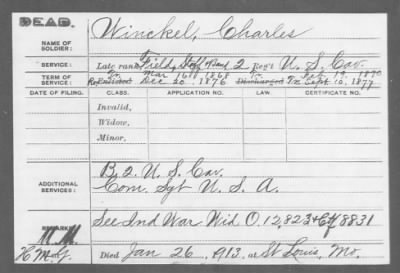 DEAD.
NAME OF SOLDIER: Winckel, Charles
SERVICE: Late rank Field, Staff & Band 2 Reg't U. S. Cav.
TERM OF SERVICE: Re-Enlisted Tr. Mar 16 1868 Discharged Tr. 19, 1870
Dec 20, 1876 Tr. Sept. 10, 1877
DATE OF FILING. CLASS. APPLICATION NO. LAW. CERTIFICATE NO.
Invalid,
Widow,
Minor,
ADDITIONAL SERVICES: B, 2 U. S. Cav.
Com. Sgt U. S. A.
REMARKS: See Ind War Wid O. 12,823 + Ctf 8831
Died Jan 26, 1913, at St Louis, Mo.